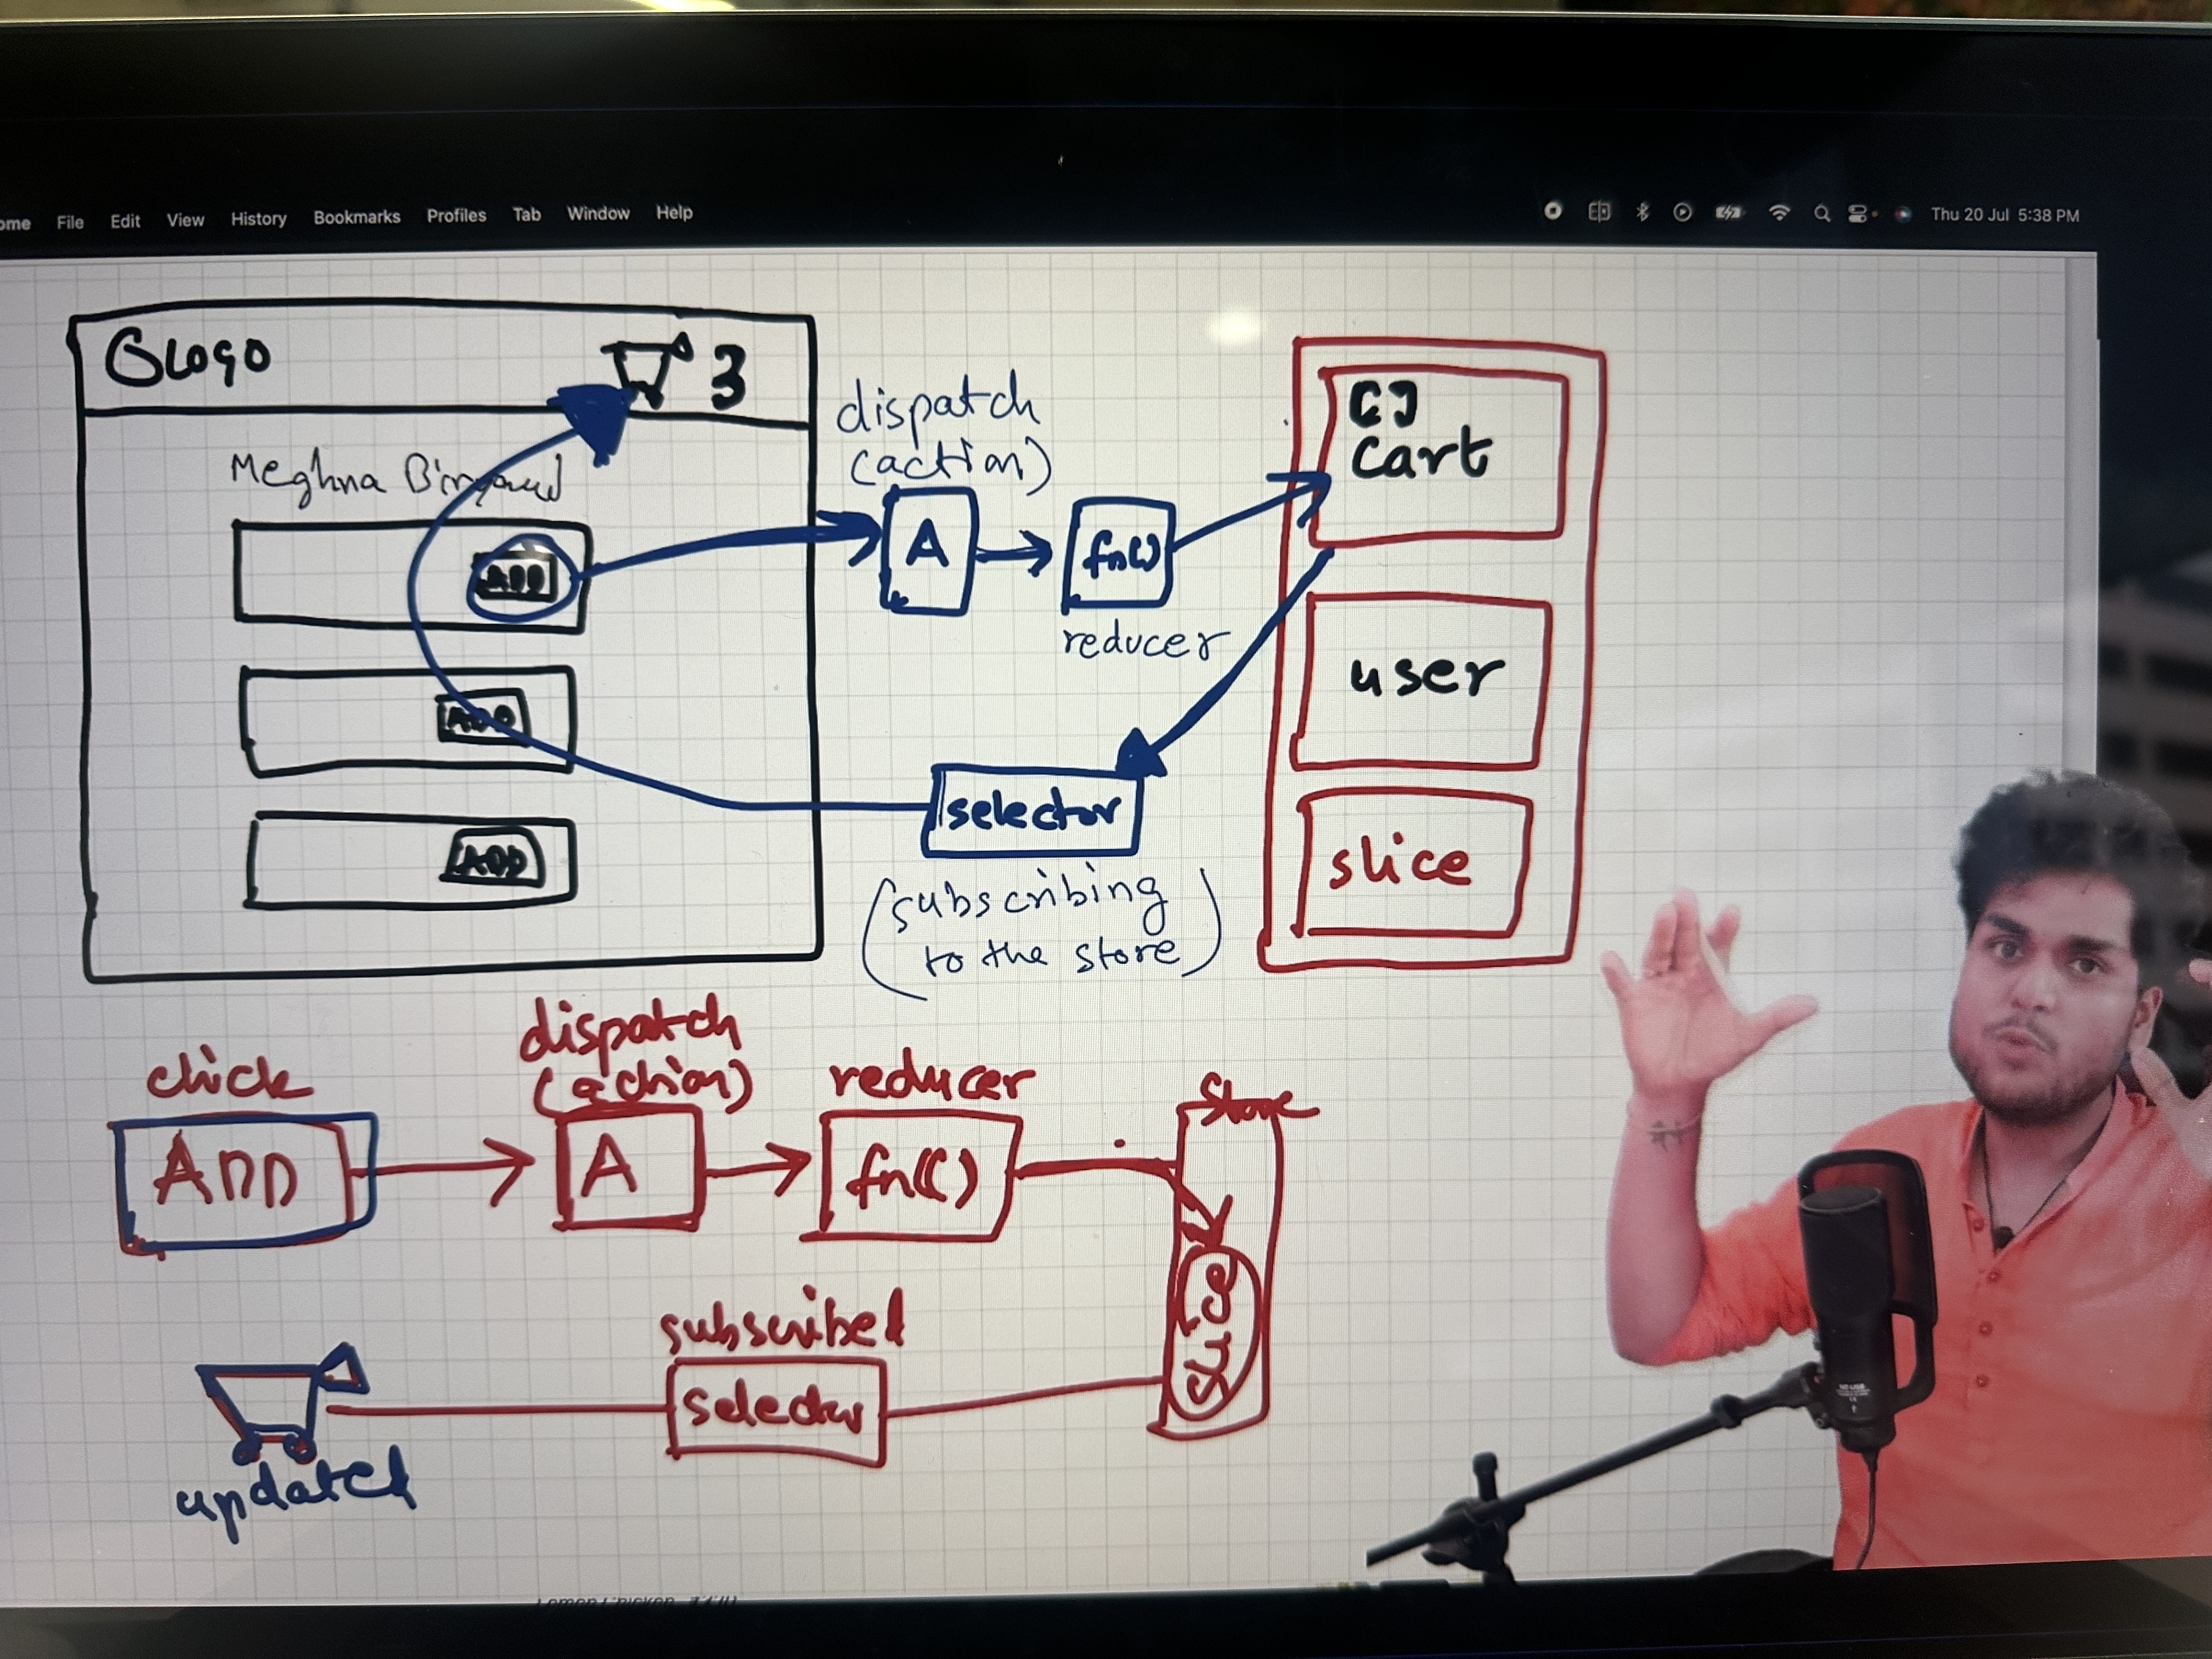 File Edit View History Bookmarks Profiles Tab Window Help
Thu 20 Jul 5:38 PM
Logo
3
Meghna
ADD
ADD
ADD
dispatch
(action)
A
fn()
reducer
[]
Cart
user
slice
selector
(subscribing
to the store)
click
ADD
dispatch
(action)
A
reducer
fn()
Store
slice
subscribed
selector
updated